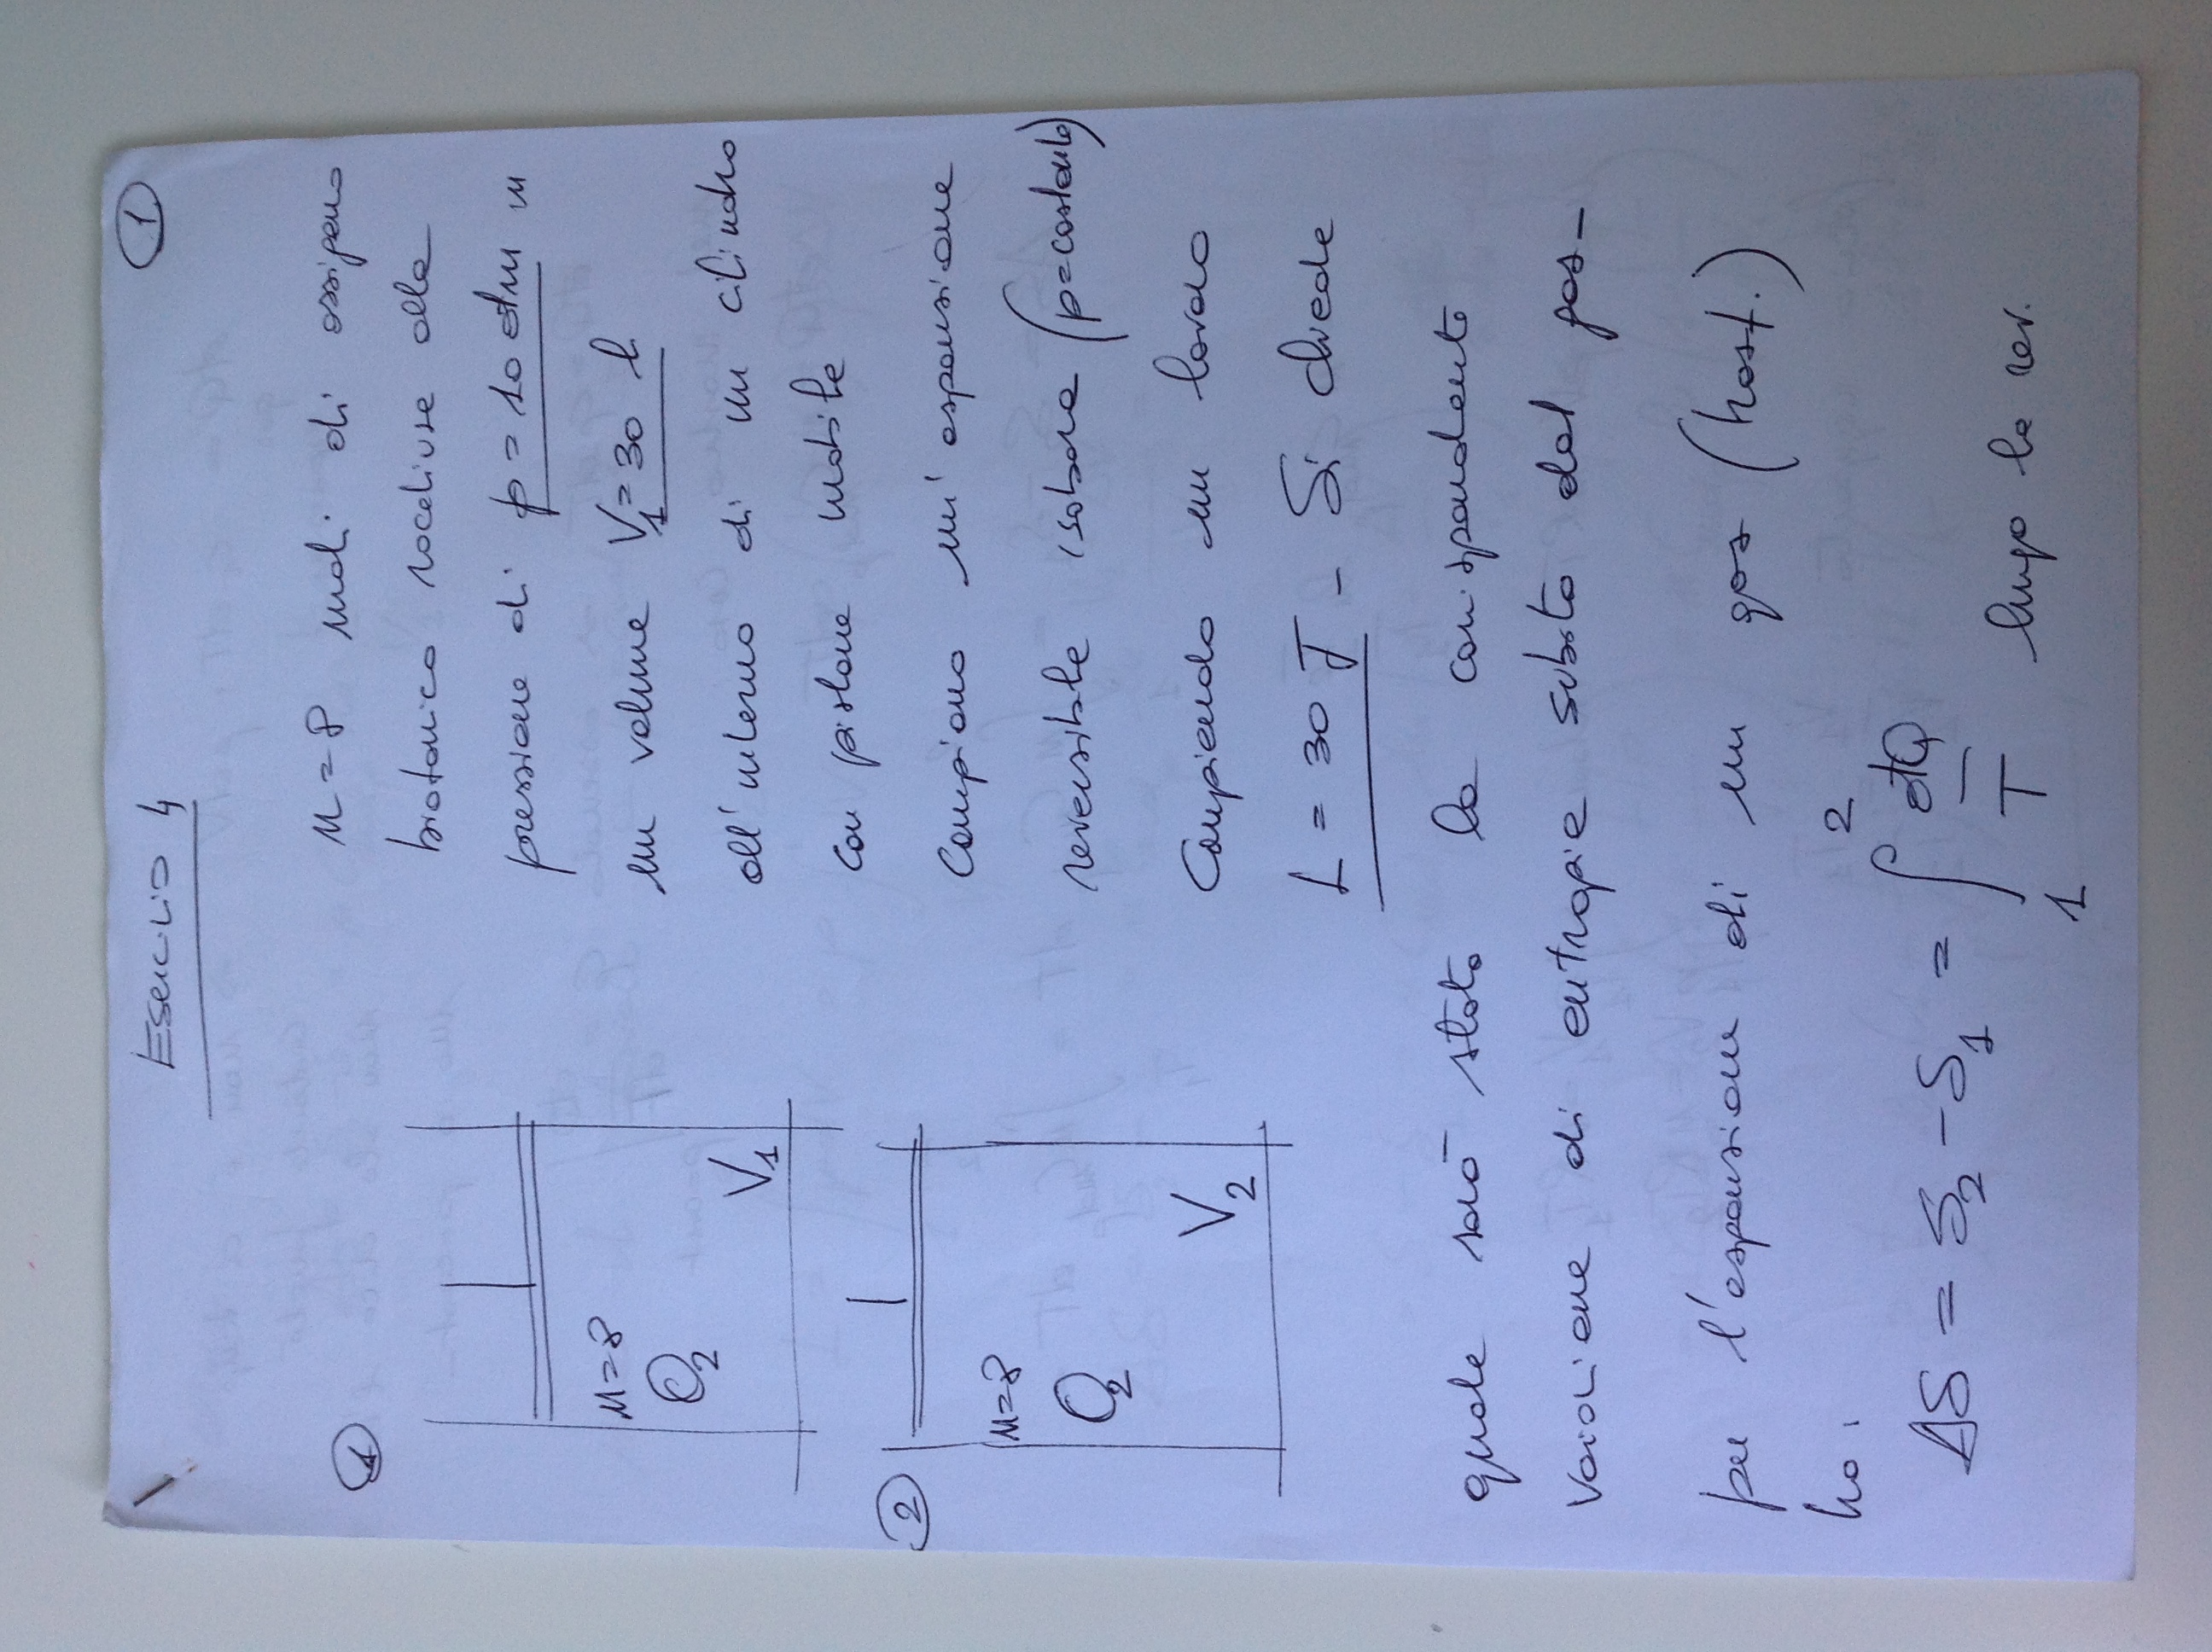 Esercizio 4
1
1
n=8 moli di ossigeno
biatomico racchiuse alla
pressione di p=10 atm in
un volume V1=30 l
all'interno di un cilindro
con pistone mobile
compiono un'espansione
reversibile isobara (p=costante)
compiendo un lavoro
L = 30 J - Si chiede
n=8
O2
V1
2
n=8
O2
V2
quale sarà stata la corrispondente
variazione di entropia subita dal gas-
per l'espansione di un gas (trasf.)
ho:
ΔS = S2 - S1 = ∫₁² dQ/T lungo la rev.